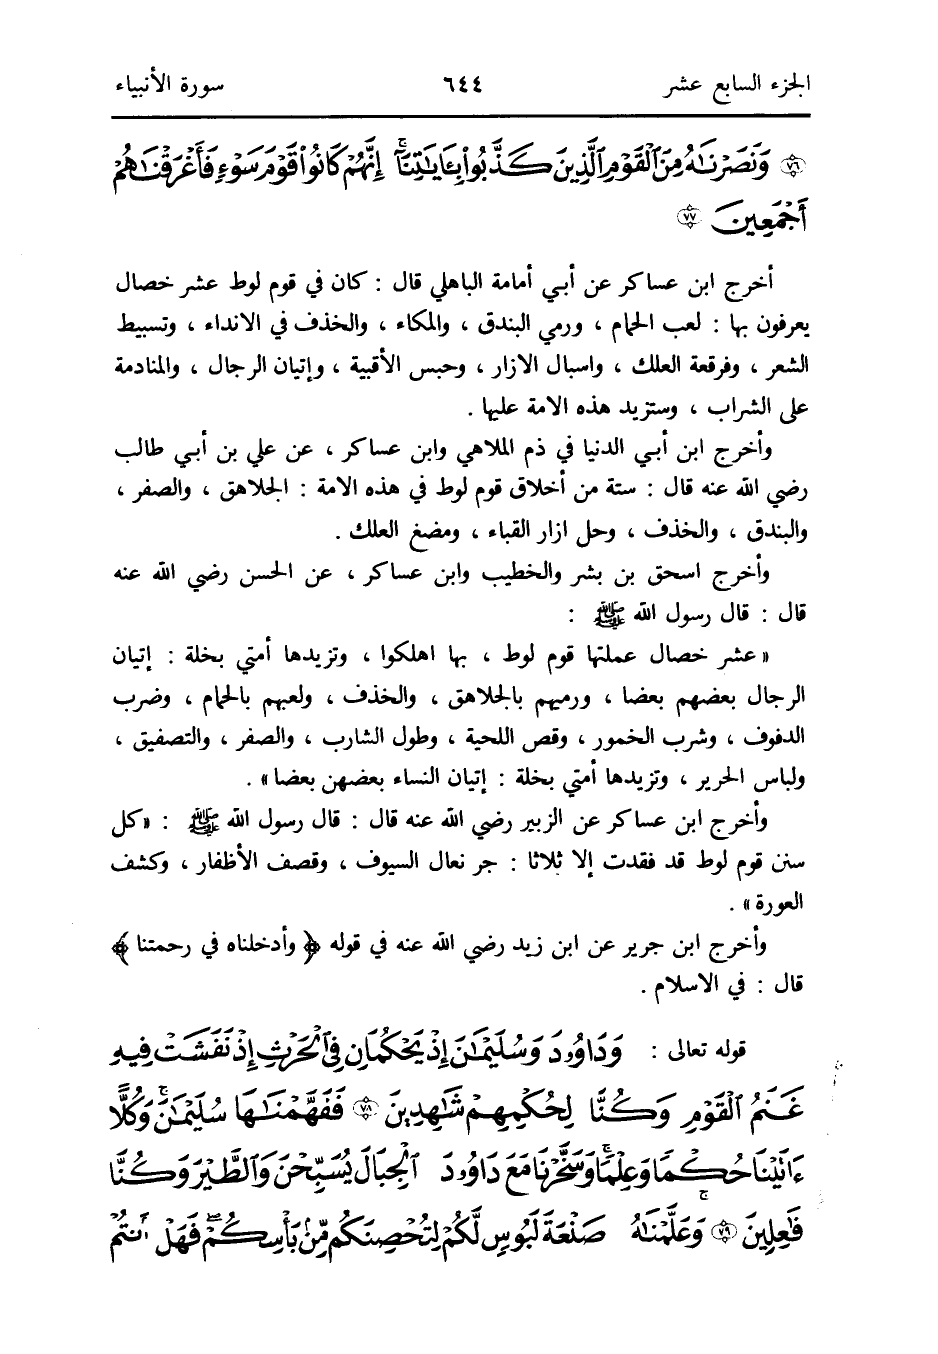 الجزء السابع عشر ٦٤٤ سورة الأنبياء
﴿٧٦﴾ وَنَصَرْنَاهُ مِنَ الْقَوْمِ الَّذِينَ كَذَّبُوا بِآيَاتِنَا إِنَّهُمْ كَانُوا قَوْمَ سَوْءٍ فَأَغْرَقْنَاهُمْ
أَجْمَعِينَ ﴿٧٧﴾
أخرج ابن عساكر عن أبي أمامة الباهلي قال : كان في قوم لوط عشر خصال
يعرفون بها : لعب الحمام ، ورمي البندق ، والمكاء ، والخذف في الانداء ، وتسبيط
الشعر ، وفرقعة العلك ، واسبال الازار ، وحبس الأقبية ، وإتيان الرجال ، والمنادمة
على الشراب ، وستزيد هذه الامة عليها .
وأخرج ابن أبي الدنيا في ذم الملاهي وابن عساكر ، عن علي بن أبي طالب
رضي الله عنه قال : ستة من أخلاق قوم لوط في هذه الامة : الجلاهق ، والصفر ،
والبندق ، والخذف ، وحل ازار القباء ، ومضغ العلك .
وأخرج اسحق بن بشر والخطيب وابن عساكر ، عن الحسن رضي الله عنه
قال : قال رسول الله ﷺ :
« عشر خصال عملتها قوم لوط ، بها اهلكوا ، وتزيدها أمتي بخلة : إتيان
الرجال بعضهم بعضا ، ورميهم بالجلاهق ، والخذف ، ولعبهم بالحمام ، وضرب
الدفوف ، وشرب الخمور ، وقص اللحية ، وطول الشارب ، والصفر ، والتصفيق ،
ولباس الحرير ، وتزيدها أمتي بخلة : إتيان النساء بعضهن بعضا » .
وأخرج ابن عساكر عن الزبير رضي الله عنه قال : قال رسول الله ﷺ : « كل
سنن قوم لوط قد فقدت إلا ثلاثا : جر نعال السيوف ، وقصف الأظفار ، وكشف
العورة » .
وأخرج ابن جرير عن ابن زيد رضي الله عنه في قوله ﴿ وأدخلناه في رحمتنا ﴾
قال : في الاسلام .
قوله تعالى : وَدَاوُودَ وَسُلَيْمَانَ إِذْ يَحْكُمَانِ فِي الْحَرْثِ إِذْ نَفَشَتْ فِيهِ
غَنَمُ الْقَوْمِ وَكُنَّا لِحُكْمِهِمْ شَاهِدِينَ ﴿٧٨﴾ فَفَهَّمْنَاهَا سُلَيْمَانَ وَكُلًّا
ءَاتَيْنَا حُكْمًا وَعِلْمًا وَسَخَّرْنَا مَعَ دَاوُودَ الْجِبَالَ يُسَبِّحْنَ وَالطَّيْرَ وَكُنَّا
فَاعِلِينَ ﴿٧٩﴾ وَعَلَّمْنَاهُ صَنْعَةَ لَبُوسٍ لَّكُمْ لِتُحْصِنَكُم مِّن بَأْسِكُمْ فَهَلْ أَنتُمْ